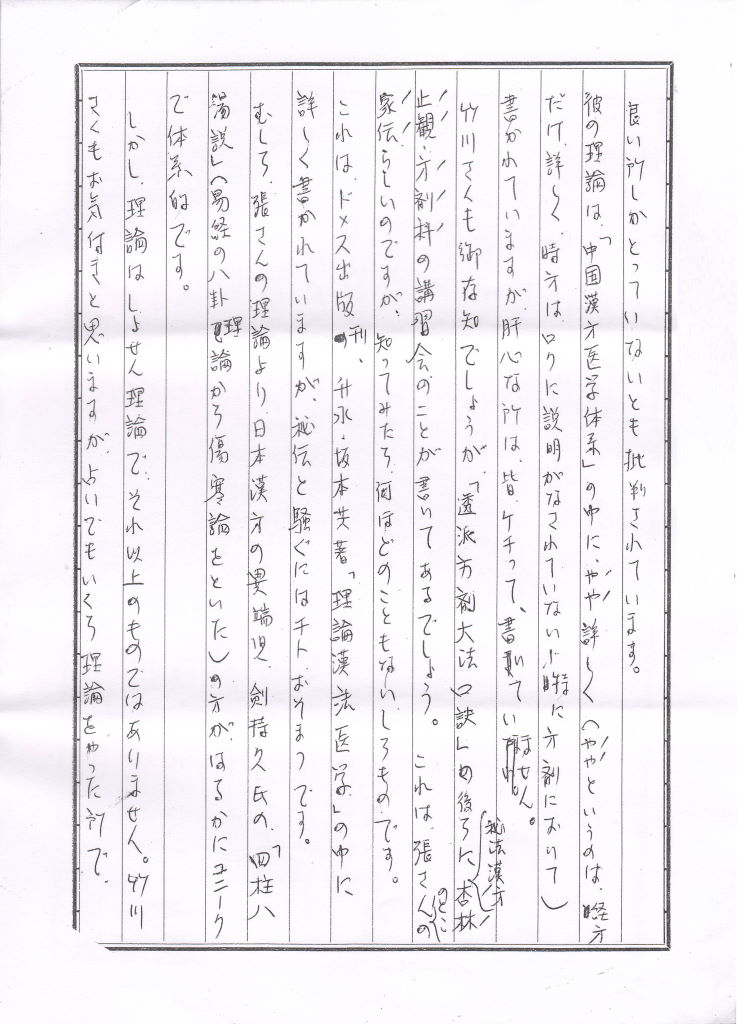 良い所しかとっていないとも批判されています。
彼の理論は、「中国漢方医学体系」の中に、やや詳しく（ややというのは、経方
だけ詳しく、時方は、ロクに説明がなされていない、特に方剤において）
書かれていますが、肝心な所は、皆、ケチって、書いていません。
竹川さくも御存知でしょうが、「透派方剤大法口訣」の後ろに杏林
秘法漢方
止観・方剤科の講習会のことが書いてあるでしょう。これは、張さんの
のとこ
家伝らしいのですが、知ってみたら、何ほどのこともないしろものです。
これは、ドメス出版刊、升水・坂本共著「理論漢法医学」の中に
詳しく書かれていますが、秘伝と騒ぐにはチトおそまつです。
むしろ、張さんの理論より、日本漢方の異端児、剣持久氏の、「四柱八
湯説」（易経の八卦理論から傷寒論をといた）の方が、はるかにユニーク
で体系的です。
しかし、理論はしょせん理論で、それ以上のものではありません。竹川
さくもお気付きと思いますが、占いでもいくら理論をやった所で、